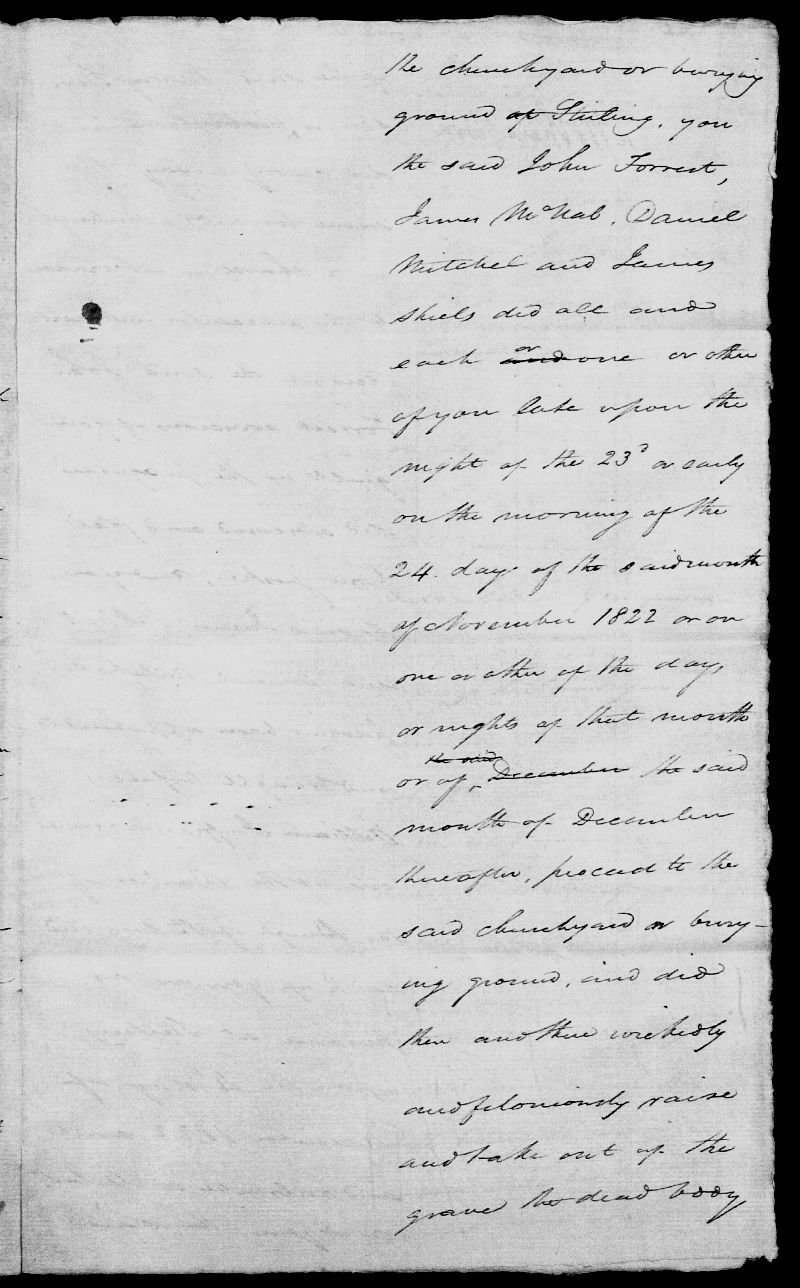 the churchyard or burying
ground of Stirling, you
the said John Forrest,
James McNab, Daniel
Mitchel and James
Shiels did all and
each and or one or other
of you late upon the
night of the 23d or early
on the morning of the
24. day of the said month
of November 1822 or on
one or other of the days
or nights of that month
or of the said December the said
month of December
thereafter, proceed to the
said churchyard or bury-
ing ground, and did
then and there wickedly
and feloniously raise
and take out of the
grave the dead body